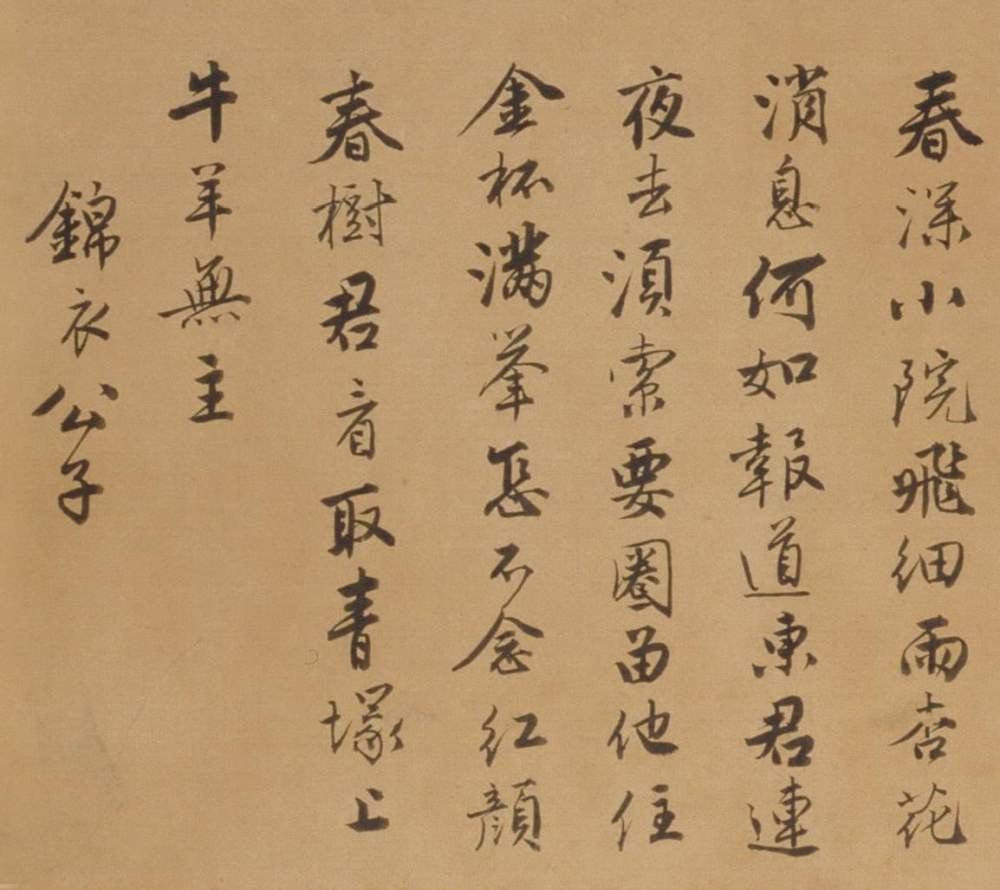 春深小院飛細雨杏花
消息何如報道東君連
夜去須索要圈留他住
金杯滿舉怎不念紅顏
春樹君看取青塚上
牛羊無主
錦衣公子